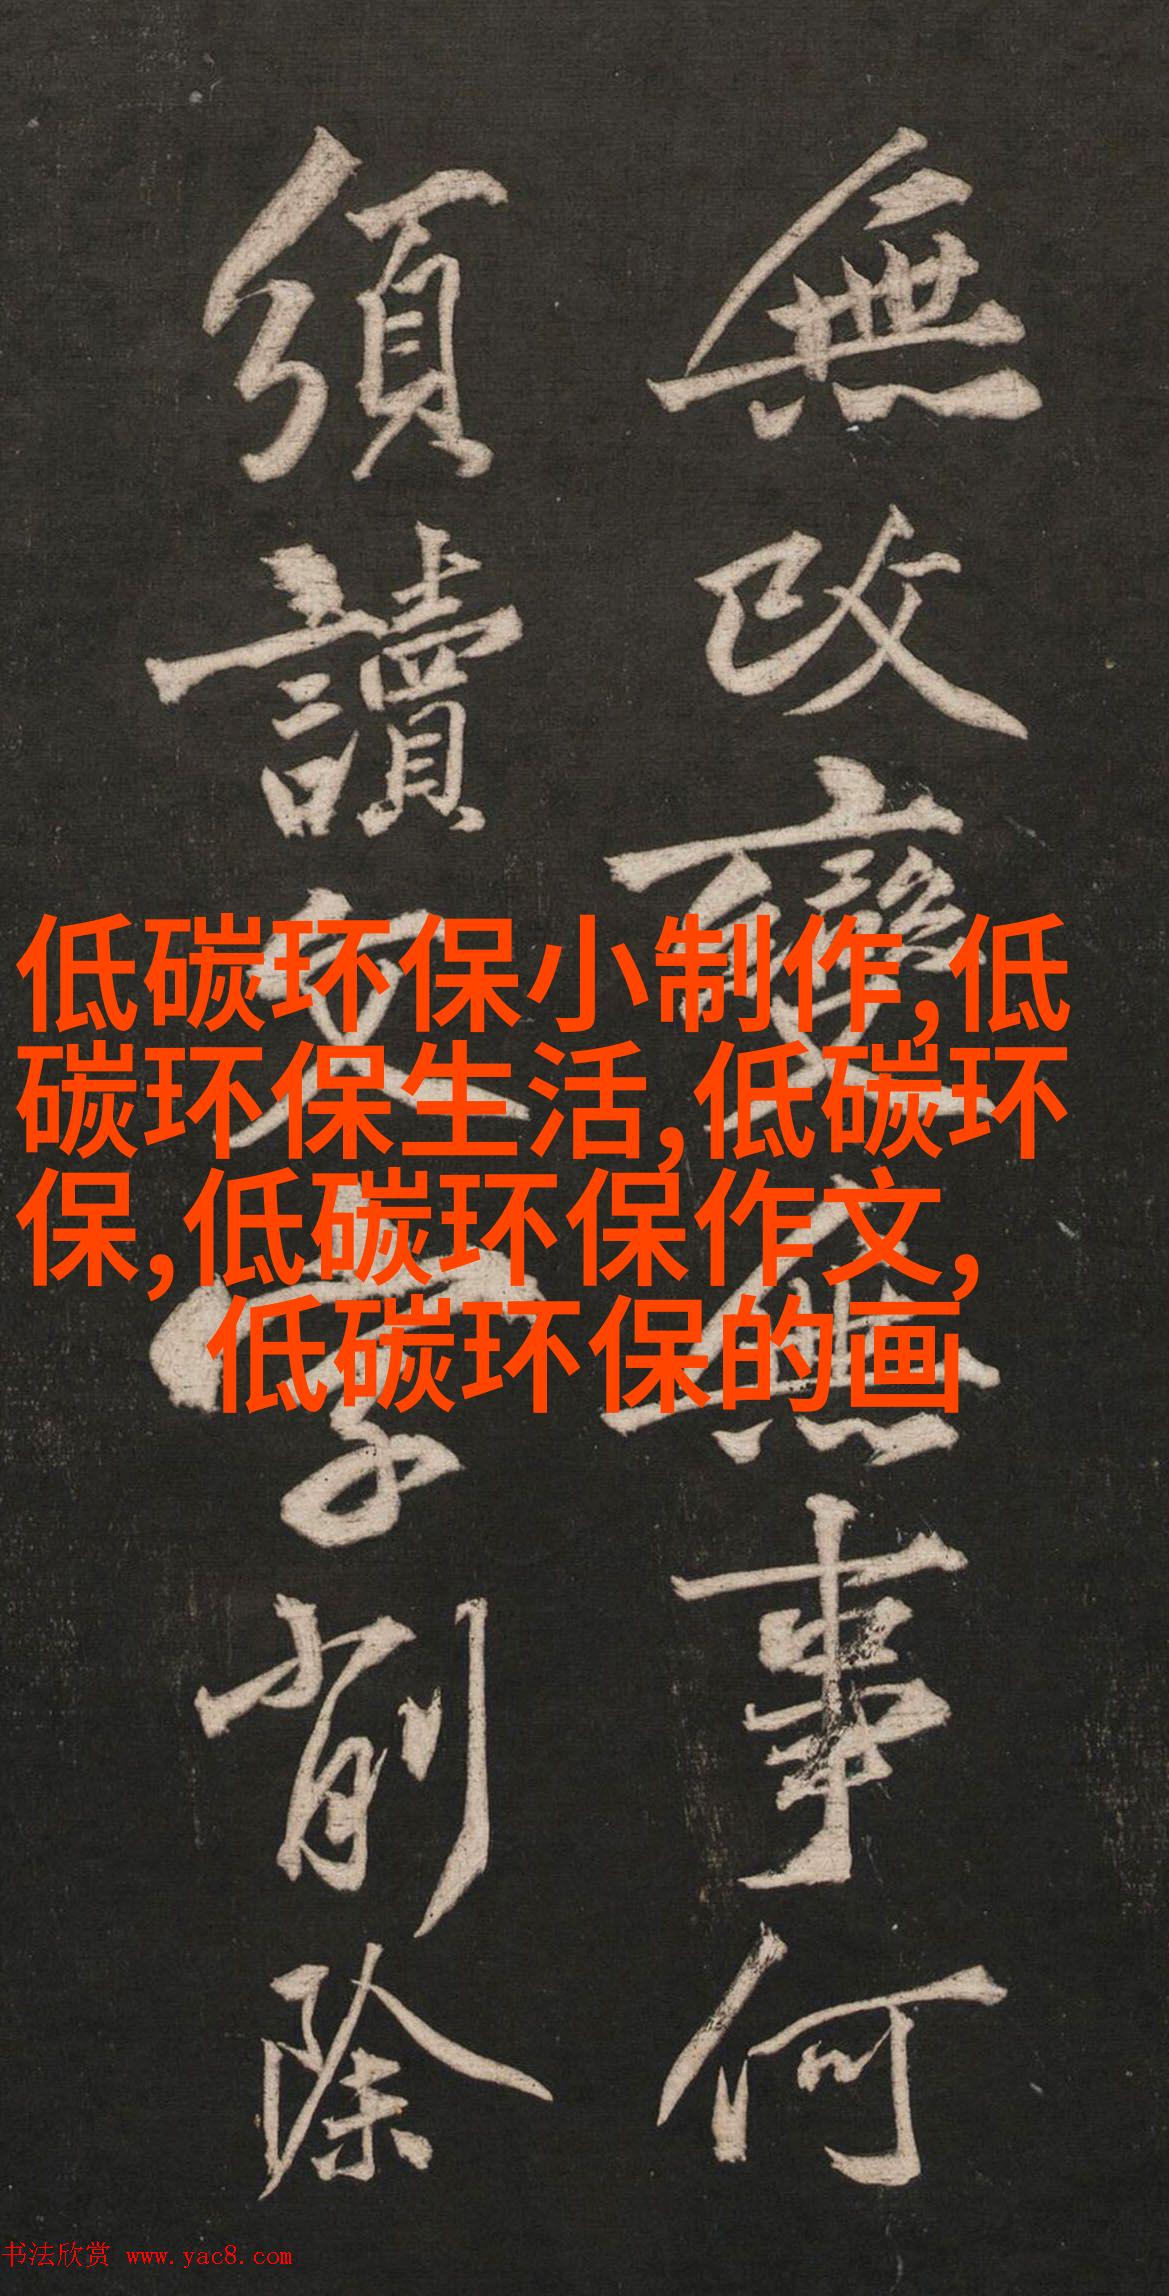 無改變無事何
須讀文字削除
低碳环保小制作,低
碳环保生活,低碳环
保,低碳环保作文,
低碳环保的画
书法欣赏 www.yac8.com